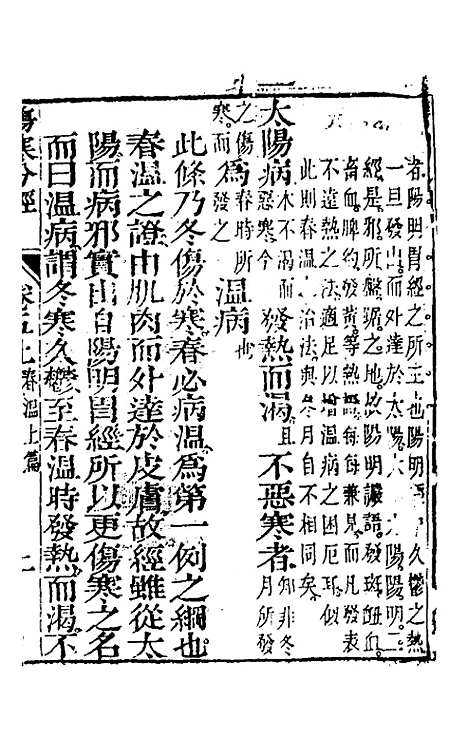 者陽明胃經之所主也陽明
久鬱之熱
一旦發出而外達於太陽
陽陽明二
經是邪所盤踞之地故陽明譫語發斑衄血
畜血脾約發黃等熱證每每兼見而凡發表
不遠熱之法適足以增溫病之困厄耳似
此則春溫 治法與冬月自不相同矣
太陽病
本不渴而
惡寒今
發熱而渴
且
不惡寒者
知非冬
月所發
之傷
寒而
為
春時所
發之
溫病
此條乃冬傷於寒春必病溫為第一例之綱也
春溫之證由肌肉而外達於皮膚故經雖從太
陽而病邪實由自陽明胃經所以更傷寒之名
而曰溫病謂冬寒久鬱至春溫時發熱而渴不
傷寒分經
卷五上 春溫上篇